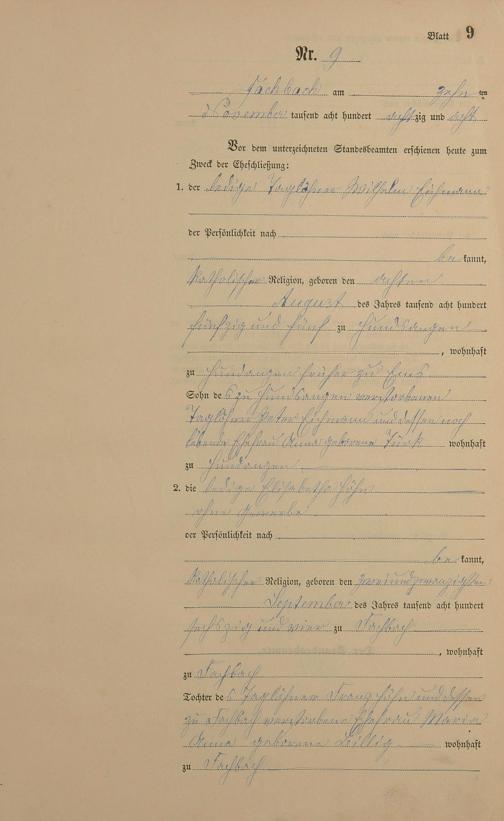 Blatt 9
Nr. 9
Fachbach am zehn ten
November tausend acht hundert achtzig und acht
Vor dem unterzeichneten Standesbeamten erschienen heute zum
Zweck der Eheschließung:
1. der ledige Taglöhner Wilhelm Eichmann
der Persönlichkeit nach
be kannt,
katholischer Religion, geboren den achten
August des Jahres tausend acht hundert
fünfzig und fünf zu Hundsangen
, wohnhaft
zu Hundsangen früher zu Ems
Sohn des zu Hundsangen verstorbenen
Taglöhner Peter Eichmann und dessen noch
lebende Ehefrau Anna geborene Türk wohnhaft
zu Hundsangen
2. die ledige Elisabetha Höhn
ohne Gewerbe
der Persönlichkeit nach
be kannt,
katholischer Religion, geboren den zweiundzwanzigsten
September des Jahres tausend acht hundert
sechszig und vier zu Fachbach
, wohnhaft
zu Fachbach
Tochter des Taglöhner Franz Höhn und dessen
zu Fachbach verstorbene Ehefrau Maria
Anna geborene wohnhaft
zu Fachbach